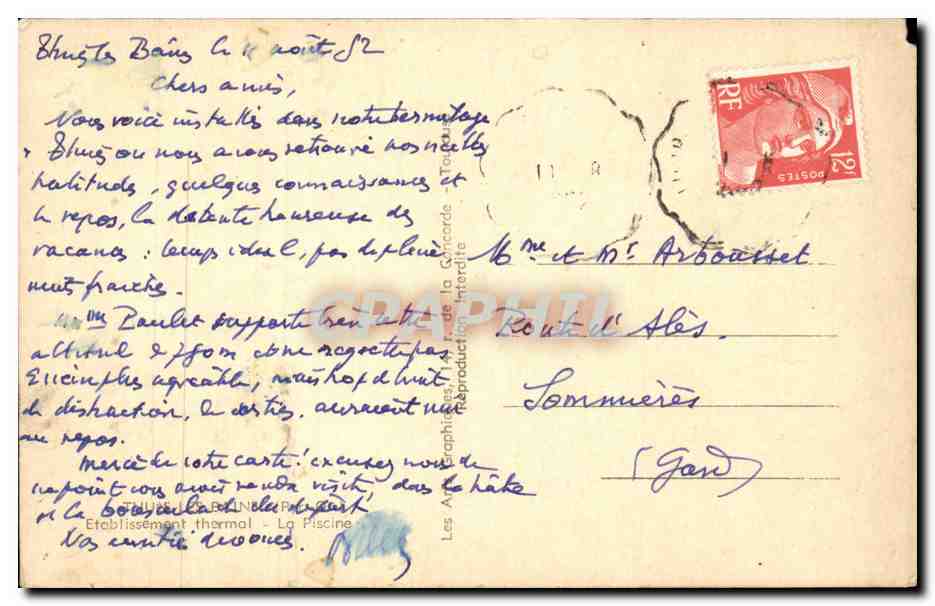 Thuès les Bains le 11 août 52
Chers amis,
Nous voici installés dans notre hermitage
Thuès ou nous avons retrouvé nos vieilles
habitudes, quelques connaissances et
le repos, la détente heureuse des
vacances : temps idéal, pas de pluie
nuits fraiches.
Mme Paulet supporte bien cette
altitude 750m et ne regrette pas
agréable, mais trop de nuit
de distraction, de sorties, auraient nui
au repos.
Merci de votre carte! excusez nous de
ne point vous avoir rendu visite, dans la hâte
et la bousculade du départ
Nos amitiés dévouées.
THUES-LES-BAINS
Etablissement thermal - La Piscine
Les Arts Graphiques, 14, r. de la Concorde - Toulouse
Reproduction Interdite
RF
12F
POSTES
Mme et Mr Arbousset
Route d'Alès.
Sommières
(Gard)
CPAPHIL